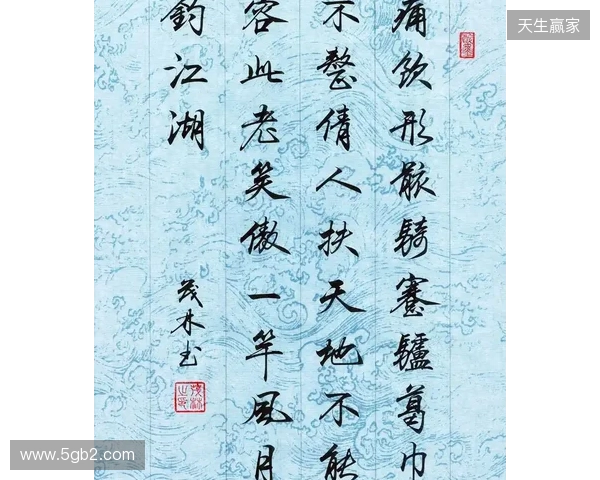 天生赢家
痛饮形骸騎蹇驢葛巾
不整倩人扶天地不能
容此老笑傲一竿風月
釣江湖
茂林书
www.5gb2.com